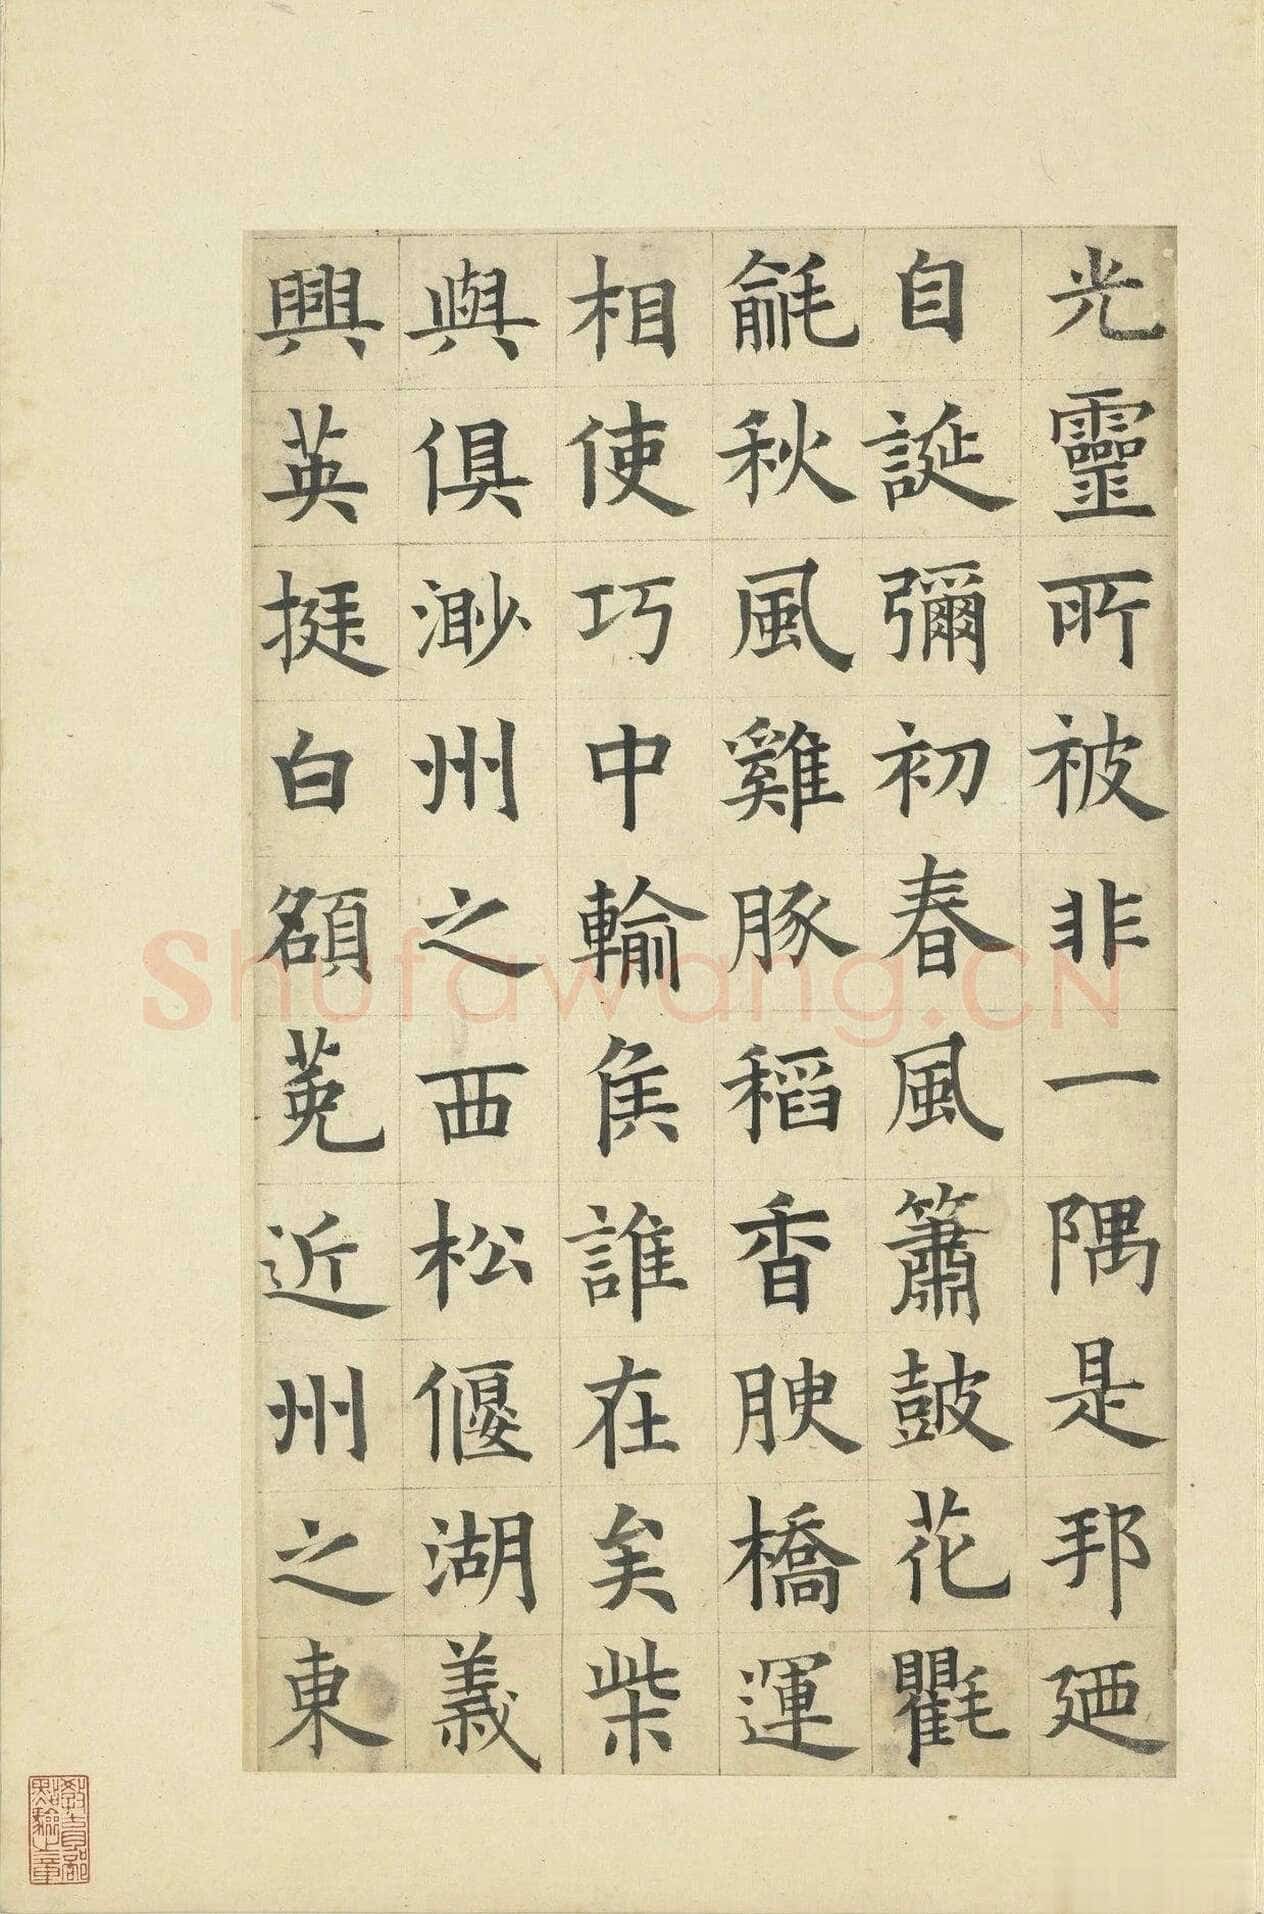 光靈所被非一隅是邦廼
自誕彌初春風簫鼓花氍
毹秋風雞豚稻香腴橋運
相使巧中輸矦誰在矣柴
與俱渺州之西松偃湖義
興英挺白頟莵近州之東
教育部點驗之章
Shufawang.CN